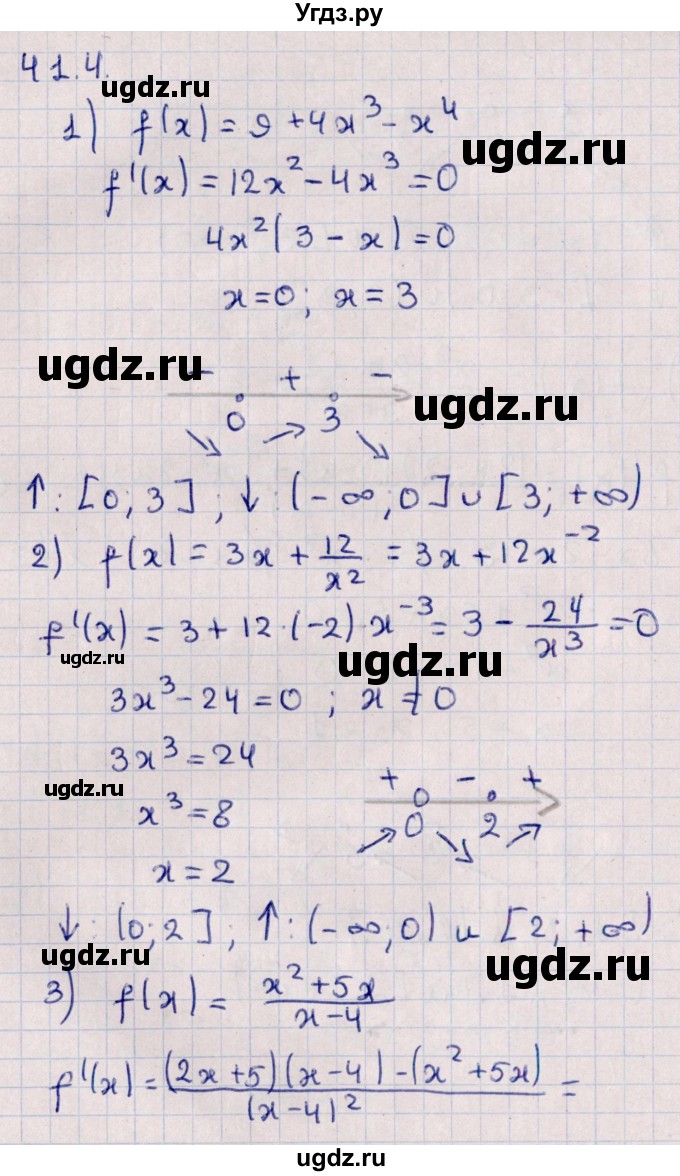 Угдз.ру
41.4.
ugdz.ru
1) f(x) = 9 + 4x³ - x⁴
f'(x) = 12x² - 4x³ = 0
ugdz.ru
4x²(3 - x) = 0
x = 0; x = 3
ugdz.ru
- + -
ugdz.ru
0 3
↑: [0; 3]; ↓: (-∞; 0] ∪ [3; +∞)
2) f(x) = 3x + 12/x² = 3x + 12x⁻²
f'(x) = 3 + 12·(-2)·x⁻³ = 3 - 24/x³ = 0
ugdz.ru
ugdz.ru
3x³ - 24 = 0; x ≠ 0
3x³ = 24
ugdz.ru
+ - +
x³ = 8
0 2
x = 2
↓: (0; 2]; ↑: (-∞; 0) и [2; +∞)
ugdz.ru
ugdz.ru
3) f(x) = (x² + 5x)/(x - 4)
f'(x) = ((2x + 5)(x - 4) - (x² + 5x))/(x - 4)² =
ugdz.ru